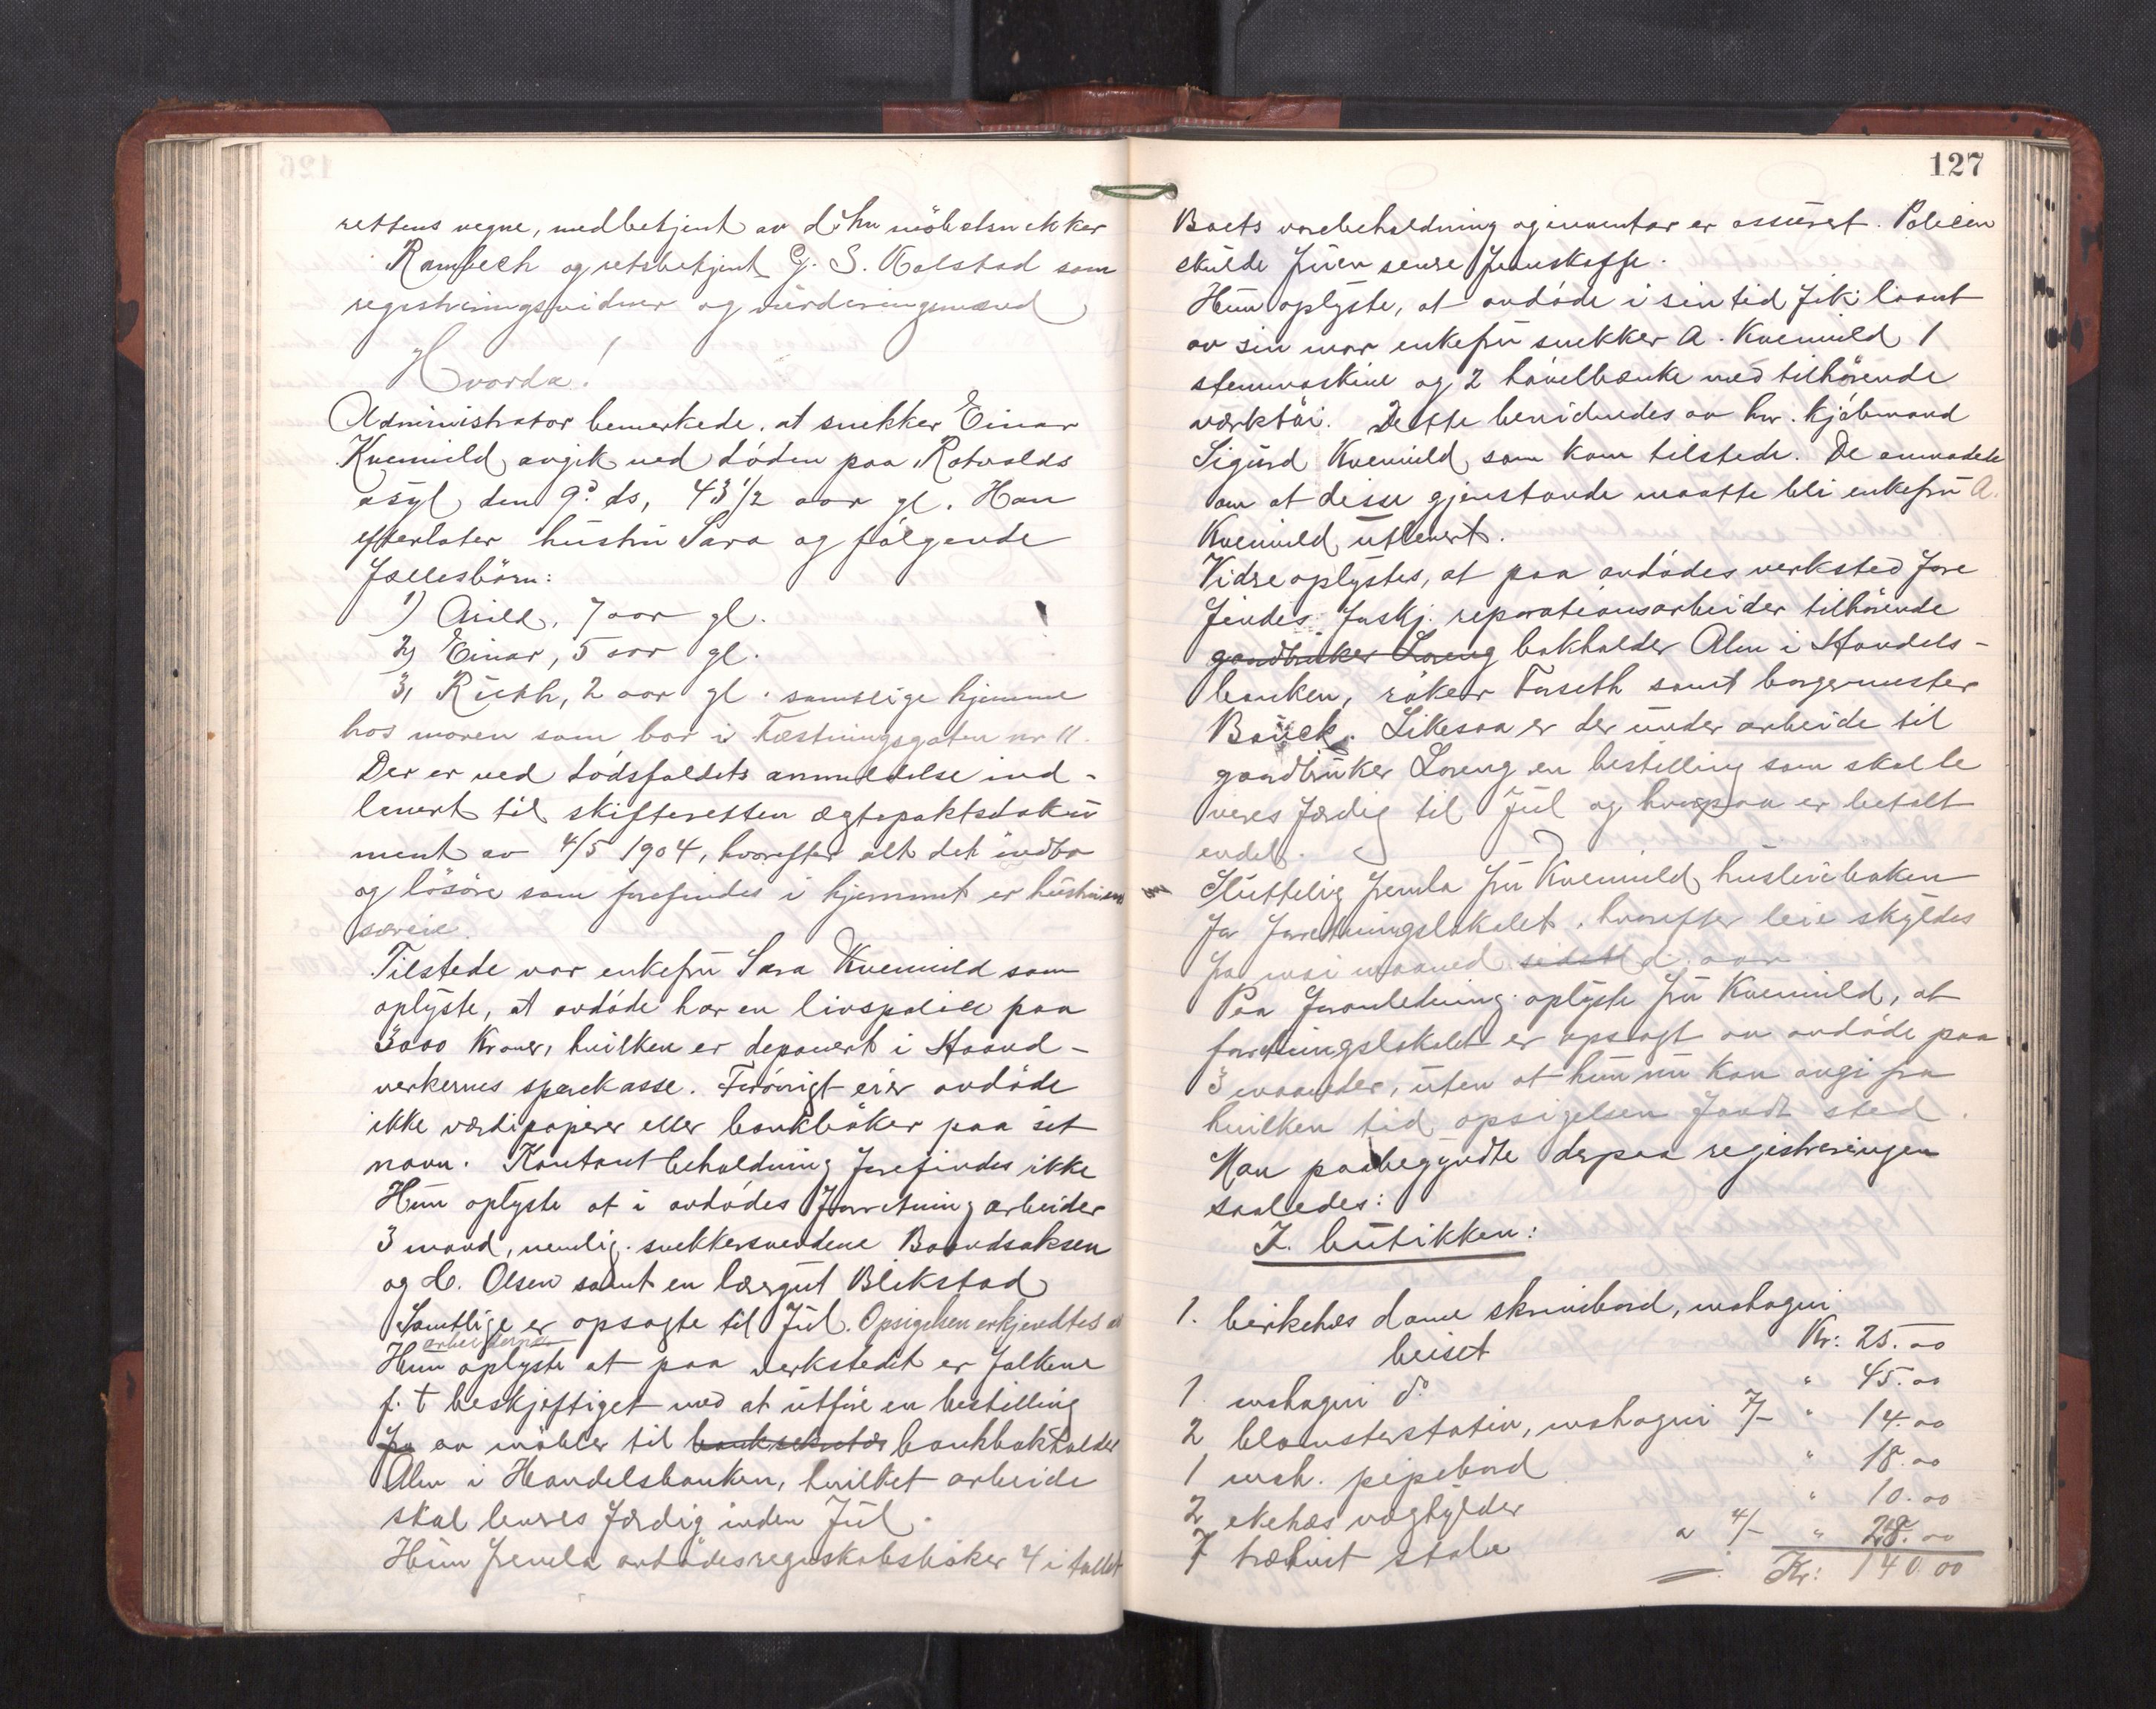 rettens vegne, med betjent av d'hrr möbelsnekker
Rambech og retsbetjent G. S. Kolstad som
registreringsvidner og vurderingsmænd
Hvorda!
Administrator bemerkede, at snekker Einar
Kvenild avgik ved döden paa Rotvolds
asyl den 9de ds, 43 1/2 aar gl. Han
efterlater hustru Sara og følgende
fællesbörn:
1) Arild, 7 aar gl.
2) Einar, 5 aar gl.
3) Ruth, 2 aar gl. samtlige hjemme
hos moren som bor i Fæstningsgaten nr 11.
Der er ved dödsfaldets anmeldelse ind-
levert til skifteretten ægtepaktsdoku
ment av 4/5 1904, hvorefter alt det indbo
og lösöre som forefindes i hjemmet er hustruens
særeie.
Tilstede var enkefru Sara Kvenild som
oplyste, at avdöde har en livspolice paa
3000 Kroner, hvilken er deponert i Haand-
verkernes sparekasse. Forövrigt eier avdöde
ikke værdipapirer eller bankböker paa sit
navn. Kontantbeholdning forefindes ikke
Hun oplyste at i avdödes forretning arbeider
3 mand, nemlig snekkersvendene Baardsaksen
og H. Olsen samt en læregut Blikstad
Samtlige er opsagte til Jul. Opsigelsen erkjendtes av
arbeiderne
Hun oplyste at paa verkstedet er folkene
f. t beskjeftiget med at utföre en bestilling
fra av möbler til banksekretær bankbokholder
Alm i Handelsbanken, hvilket arbeide
skal leveres færdig inden Jul.
Hun fremla avdödes regnskabsböker 4 i tallet
127
Boets varebeholdning og inventar er assurert. Policen
skulde fruen senere fremskaffe.
Hun oplyste, at avdöde i sin tid fik laant
av sin mor enkefru snekker A. Kvenild 1
stemmaskine og 2 hövelbænke med tilhörende
værktöi. Dette bevidnedes av hr. kjöbmand
Sigurd Kvenild, som kom tilstede. De anmodet
om at disse gjenstande maatte bli enkefru A.
Kvenild utlevert.
Vidre oplystes, at paa avdödes verksted fore
findes forskj. reparationsarbeider tilhörende
gaardbruker Loreng bokholder Alm i Handels-
banken, röker Forseth samt borgermester
Bauck. Likesaa er der under arbeide til
gaardbruker Loreng en bestilling som skal le
veres færdig til Jul og hvorpaa er betalt
endel.
Sluttelig fremla fru Kvenild husleieboken
for forretningslokalet, hvorefter leie skyldes
fra mai maaned sidstl d. aar
Paa foranledning oplyste fru Kvenild, at
forretningslokalet er opsagt av avdöde paa
3 maaneder, uten at hun nu kan angi fra
hvilken tid opsigelsen fandt sted.
Man paabegyndte derpaa registreringen
saaledes:
I. butikken:
1. birketræs dame skrivebord, mahogni
beiset Kr: 25.00
1. mahogni do " 45.00
2 blomsterstativ, mahogni 7/- " 14.00
1 mah. pipebord " 18.00
2 eketræs veghylder " 10.00
7 træhvit stole a 4/- " 28.00
Kr: 140.00